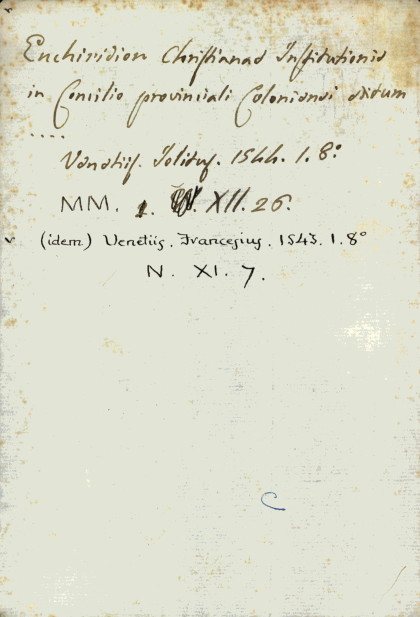 Enchiridion Christianae Institutionis
in Concilio provinciali Coloniensi editum
....
Venetiis. Jolitus. 1544. 1. 8°
MM. 1. XII. 26.
(idem) Venetiis. Francesius. 1543. 1. 8°
N. XI. 7.
C